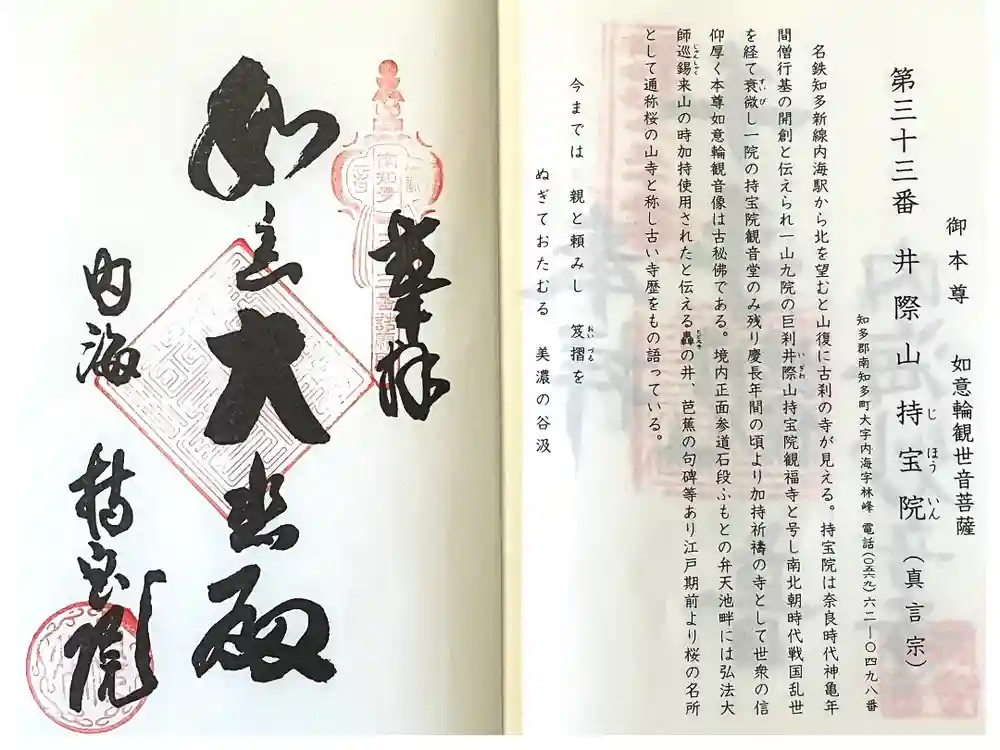 御本尊 如意輪観世音菩薩
第三十三番 井際山持宝院（真言宗）
じほういん
知多郡南知多町大字内海字林峰 電話（〇五六九）六二―〇四九八番
名鉄知多新線内海駅から北を望むと山復に古刹の寺が見える。持宝院は奈良時代神亀年
間僧行基の開創と伝えられ一山九院の巨刹井際山持宝院観福寺と号し南北朝時代戦国乱世
いぎわ
を経て衰微し一院の持宝院観音堂のみ残り慶長年間の頃より加持祈禱の寺として世衆の信
すいび
仰厚く本尊如意輪観音像は古秘佛である。境内正面参道石段ふもとの弁天池畔には弘法大
師巡錫来山の時加持使用されたと伝える轟の井、芭蕉の句碑等あり江戸期前より桜の名所
じゅんしゃく
として通称桜の山寺と称し古い寺歴をもの語っている。
今までは 親と頼みし 笈摺を
おいづる
ぬぎておたむる 美濃の谷汲
奉拝
如意大悲殿
内海 持宝院